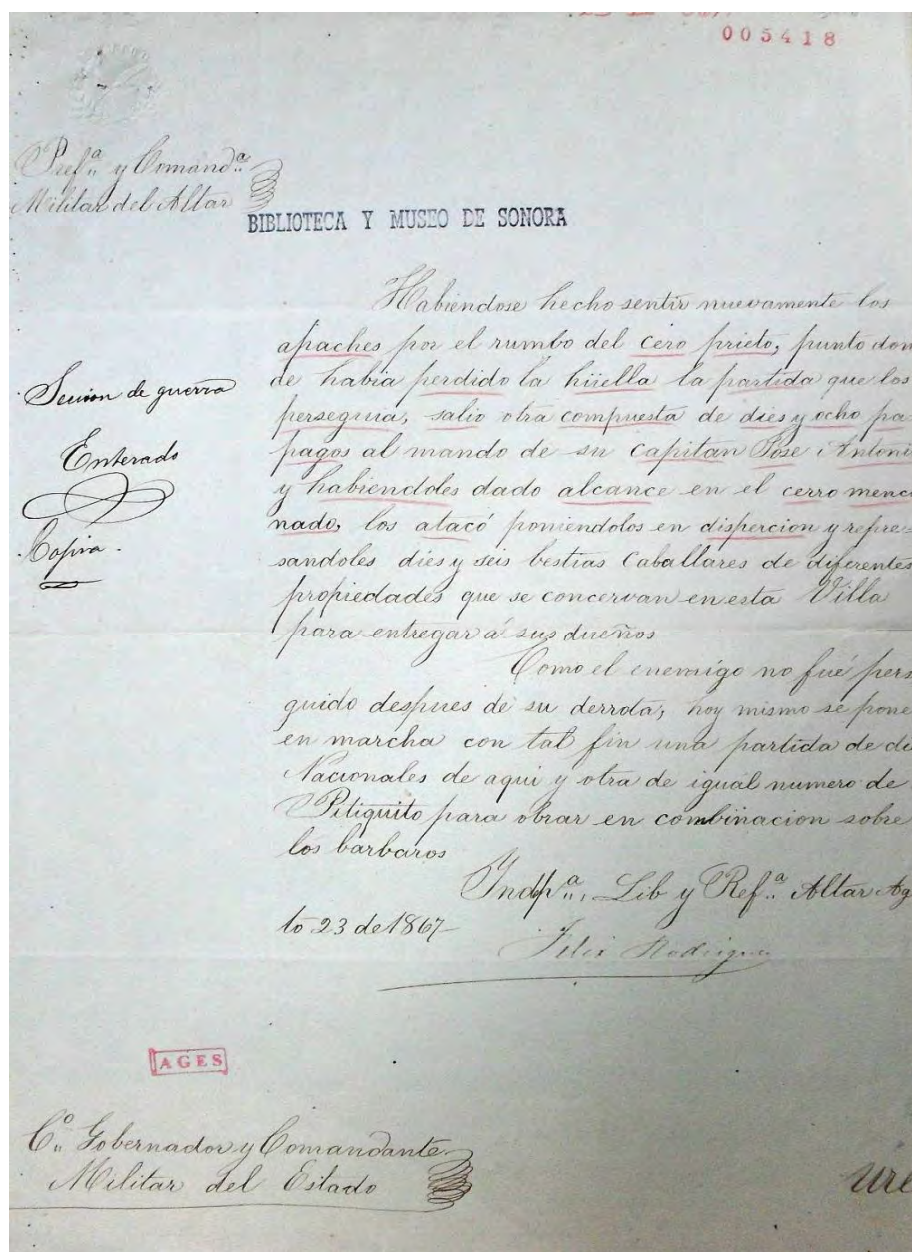 005418
Prefª y Comandª
Militar del Altar
BIBLIOTECA Y MUSEO DE SONORA
Habiendose hecho sentir nuevamente los
apaches por el rumbo del cero prieto, punto don
de habia perdido la hüella la partida que los
perseguia, salio otra compuesta de dies y ocho pa
pagos al mando de su Capitan Jose Antoni
y habiendoles dado alcance en el cerro menci
nado, los atacó poniendolos en dispercion y repre-
sandoles dies y seis bestias Caballares de diferentes
propiedades que se concervan en esta Villa
para entregar á sus dueños
Como el enemigo no fué pers
guido despues de su derrota, hoy mismo se pone
en marcha con tal fin una partida de di
Nacionales de aqui y otra de igual numero de
Pitiquito para obrar en combinacion sobre
los barbaros
Indpª, Lib y Refª Altar Ag
to 23 de 1867
Felix Rodriguez
Secsion de guerra
Enterado
Copia.
AGES
C. Gobernador y Comandante
Militar del Estado
Ure